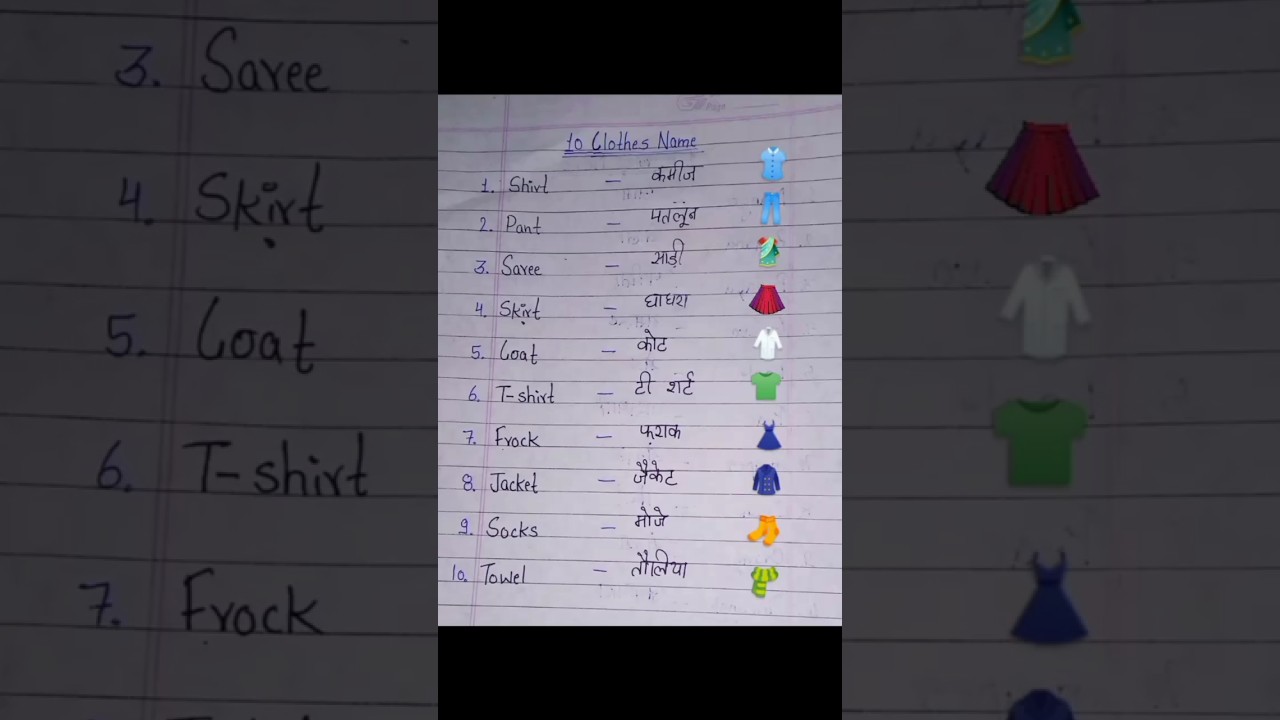 10 Clothes Name
1. Shirt — कमीज
2. Pant — पतलून
3. Saree — साड़ी
4. Skirt — घाघरा
5. Coat — कोट
6. T-shirt — टी शर्ट
7. Frock — फ़राक
8. Jacket — जैकेट
9. Socks — मोजे
10. Towel — तौलिया
3. Saree
4. Skirt
5. Coat
6. T-shirt
7. Frock